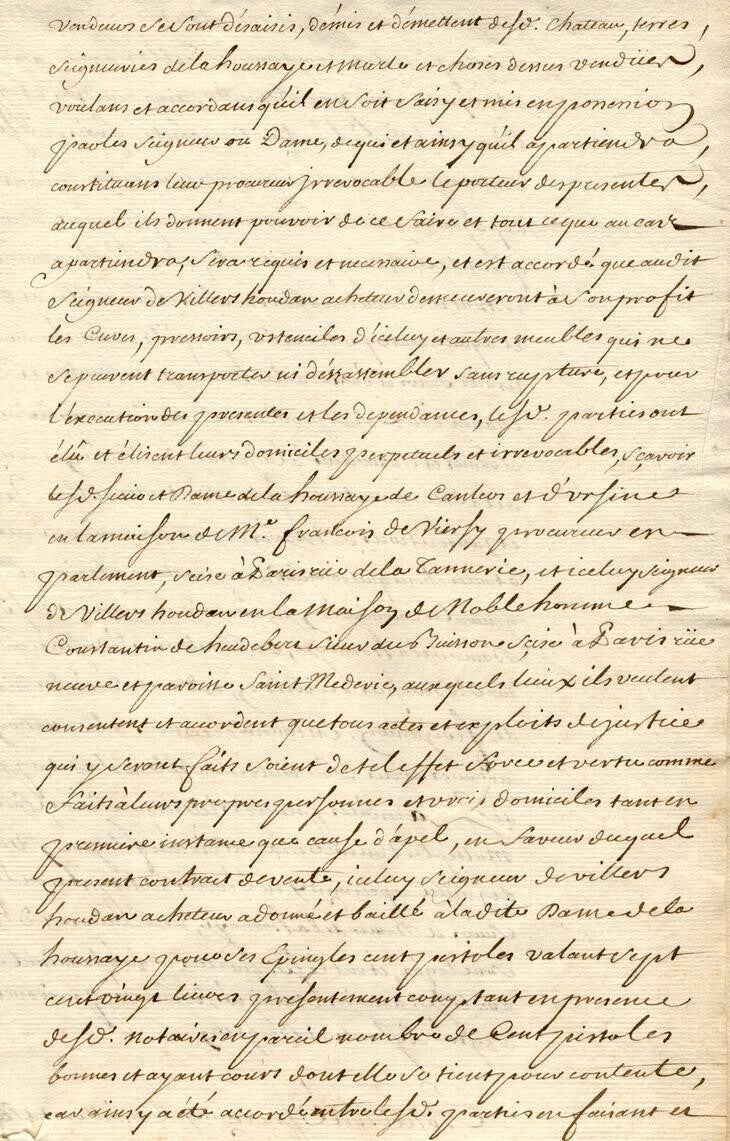 vendeurs se sont désaisis, démis et démettent desd. Chateau, terres,
seigneuries de la houssaye et et choses dessus vendües,
voulans et accordans qu'il en soit saisy et mis en possession
par les seigneur ou Dame, de qui et ainsy qu'il apartiendra,
constituans leur procureur irrevocable le porteur des presentes,
auquel ils donnent pouvoir de ce faire et tout ce que au cas
apartiendra, sera requis et necessaire, et est accordé que audit
Seigneur de Villers houdan acheteur demeureront à son profit
les Cuves, pressoirs, ustenciles d'iceluy et autres meubles qui ne
se peuvent transporter ni déssassembler sans rupture, et pour
l'execution des presentes et les dependances, lesd. parties ont
élû et élisent leurs domiciles perpetuels et irrevocables, sçavoir
lesd. sieur et Dame de la houssaye de et d'Ursine
en la maison de Me. francois de procureur en
parlement, scise à Paris rüe de la Tannerie, et iceluy seigneur
de Villers houdan en la Maison de Noble homme
Constantin de sieur du Buisson scise à Paris rüe
neuve et paroisse Saint Mederic, auxquels lieux ils veulent
consentent et accordent que tous actes et exploits de justice
qui y seront faits soient de tel effet force et vertu comme
faits à leurs propres personnes et vrais domiciles tant en
premiere instance que cause d'apel, en faveur duquel
present contract de vente, iceluy seigneur de villers
houdan acheteur a donné et baillé à la dite Dame de la
houssaye pour ses Epingles cent pistoles valant sept
cent vingt livres presentement comptant en presence
desd. notaires en pareil nombre de Cent pistoles
bonnes et ayant cours dont elle se tient pour contente,
car ainsy a été accordé entre lesd. parties en faisant et